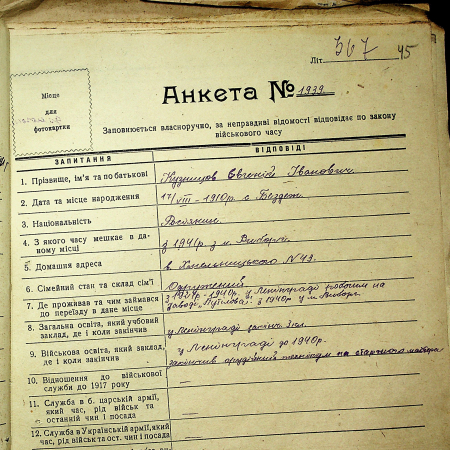 Літ. 367 45
Місце
для
фотокартки
Анкета № 1939
Заповнюється власноручно, за неправдиві відомості відповідає по закону
військового часу
ЗАПИТАННЯ
ВІДПОВІДІ
1. Прізвище, ім'я та по батькові Кузницов Евгеній Іванович.
2. Дата та місце народження 17/VIII - 1910р. с. Бездеж
3. Національність Росіянин.
4. З якого часу мешкає в да-
ному місці
з 1940р. з м.
5. Домашня адреса в Хмельницького N 49.
6. Сімейний стан та склад сім'ї Одружений
7. Де проживав та чим займався
до переїзду в дане місце
з 1927р. - 1940р. у Ленінграді робочим на
заводі Путілова. з 1940р у м.
8. Загальна освіта, який учбовий
заклад, де і коли закінчив
у Ленінграді
9. Військова освіта, який заклад,
де і коли закінчив
у Ленінграді до 1940р.
закінчив технікум на
10. Відношення до військової
служби до 1917 року —
11. Служба в б. царській армії,
який час, рід військ та
останній чин і посада —
12. Служба в Українській армії, який
час, рід військ та ост. чин і посада —